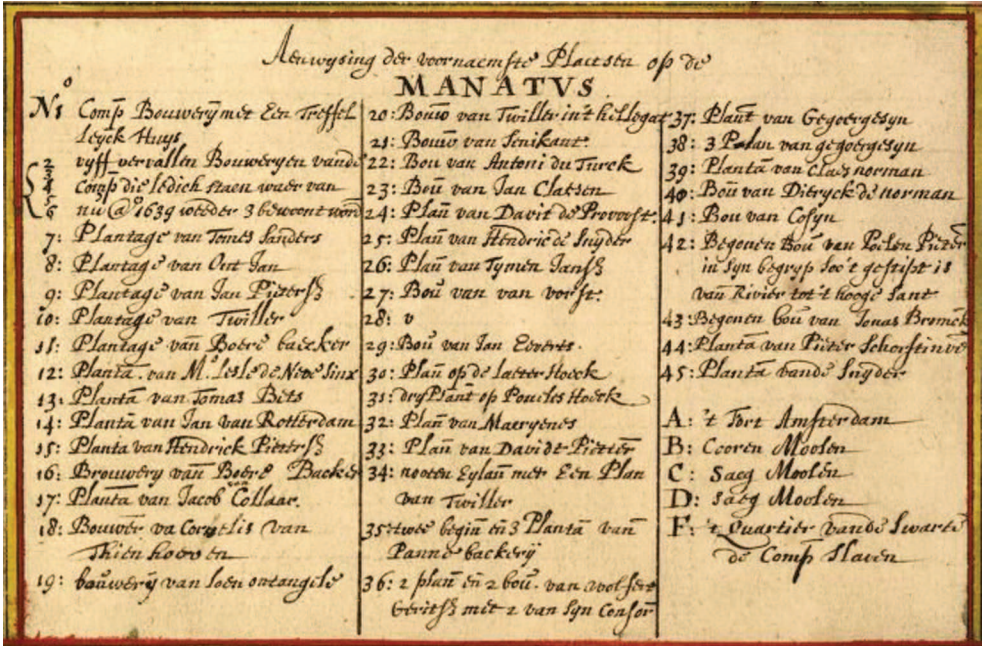 Aenwysing der voornaemste Plaetsen op de
MANATVS
No
1 Comp Bouwerij met Een Treffel
leyck Huys
2 vyff vervallen Bouweryen vande
3
4 Comp die ledich staen waer van
5
6 nu @ 1639 weeder 3 bewoont word
7: Plantage van Tomes Sanders
8: Plantage van Out Jan
9: Plantage van Jan Pietersz
10: Plantage van Twiller
11: Plantage van Boere backer
12: Planta van M. Lesle de Neve Sinx
13: Planta van Tomas Bets
14: Planta van Jan van Rotterdam
15: Planta van Hendrick Pietersz
16: Brouwery van Boere Backer
17: Planta van Jacob Collaar
18: Bouwer va Cornelis van
Thienhoven
19: bouwerij van loen ontangele
20: Bouw van Twiller in't hellegat
21: Bouw van Senikant
22: Bou van Antoni du Turck
23: Bou van Jan Claesen
24: Plan van Davit de Provost:
25: Plan van Hendric de Snyder
26: Plan van Tymen Jansz
27: Bou van van vorst:
28: v
29: Bou van Jan Everts.
30: Plan op de laeter Hoeck
31: dry Plant op Poueles Hoeck
32: Plan van Maeryenes
33: Plan van Davidt Pietter
34: nooten Eylan met Een Plan
van Twiller
35: twee begin en 3 Planta van
Panne backerij
36: 2 plan en 2 bou. van wolfert
Geritsz met 2 van Syn Consor
37: Plant van Gegoergesyn
38: 3 Plan van gegoergesyn
39: Planta van Claes norman
40: Bou van Dieryck de norman
41: Bou van Cosyn
42: Begonen Bou van Poelen Pieter
in Syn begryp soo't gestipt is
van Rivier tot't hooge Sant
43: Begonen bou van Jonas Bronck
44: Planta van Pieter Schorstinve
45: Planta vande Snyder
A: 't Fort Amsterdam
B: Cooren Moolen
C: Saeg Moolen
D: Saeg Moolen
F: 't Quartier vande Swarte
de Comp Slaven